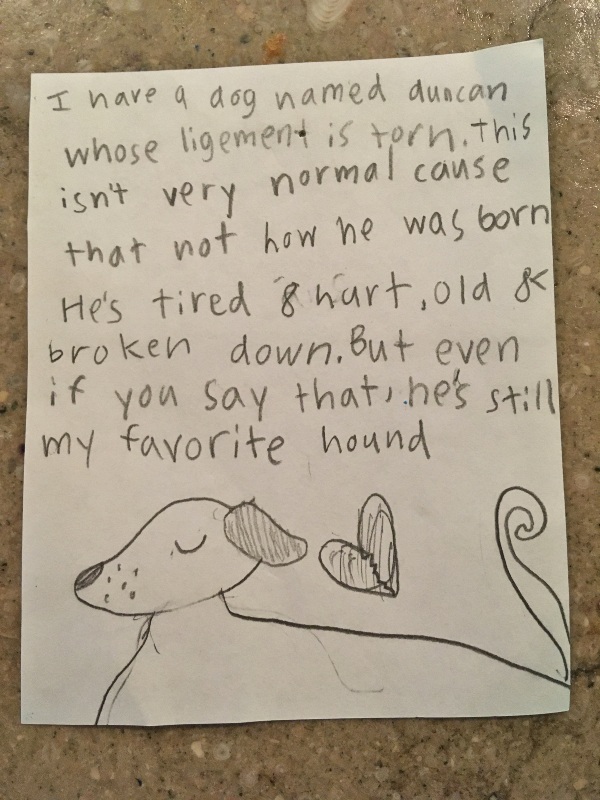 I have a dog named duncan
whose ligement is torn. This
isn't very normal cause
that not how he was born
He's tired & hurt, old &
broken down. But even
if you say that, he's still
my favorite hound